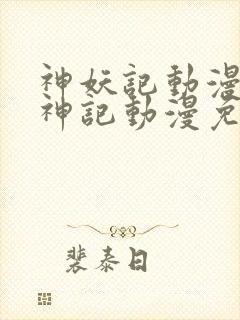 神妖記動漫
神記動漫免
裴泰日